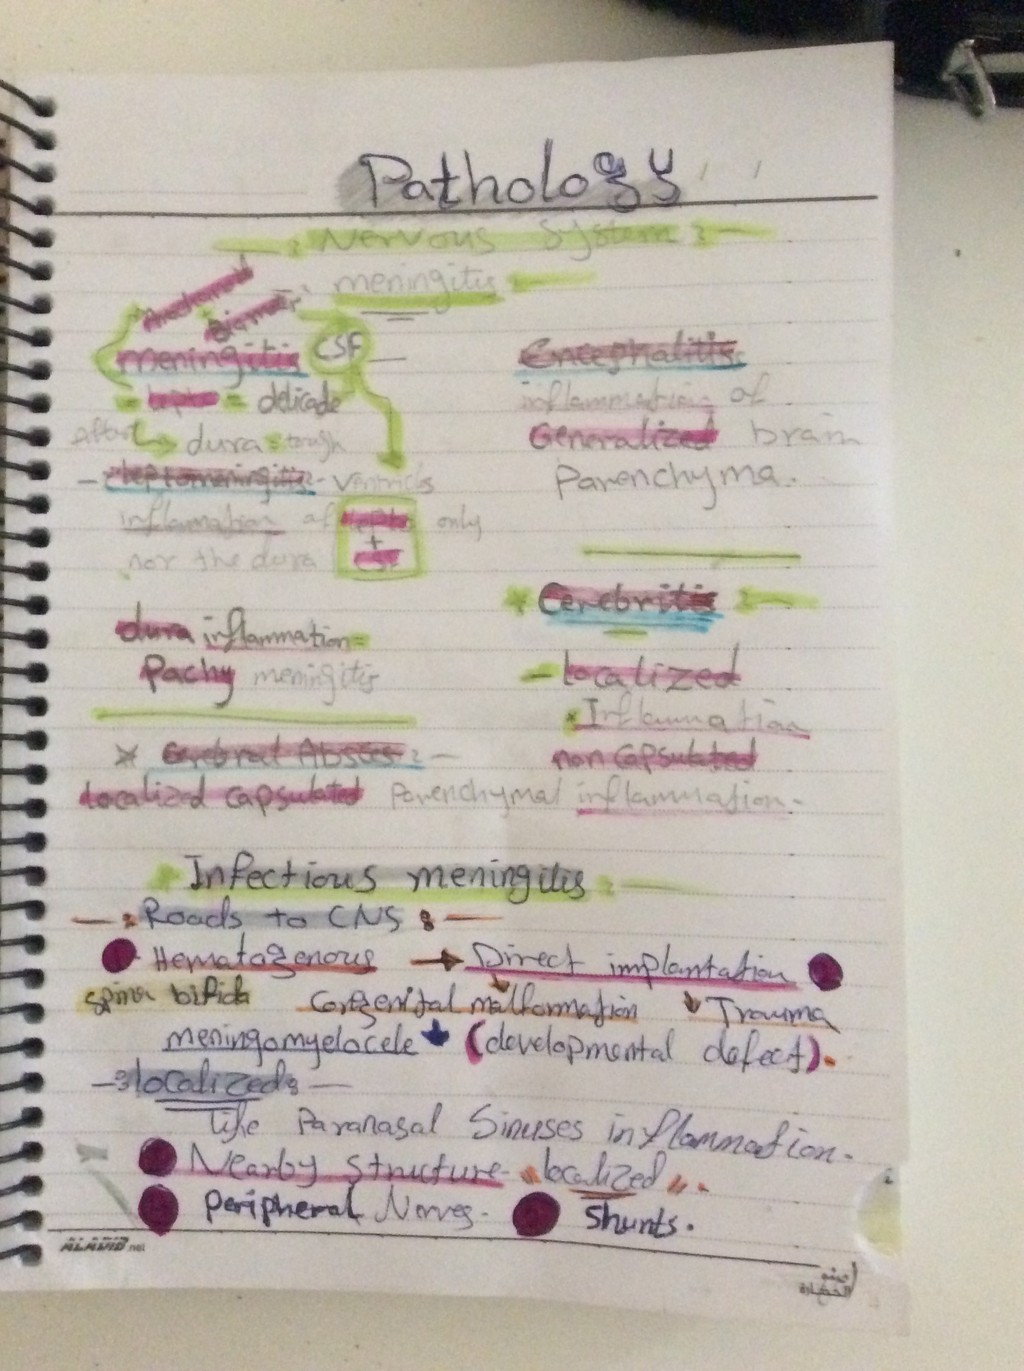 Pathology
: Nervous System :
meningitis
meningitis CSF
= lepto = delicade
dura = tough
- leptomeningitis - ventricls
inflammation of lepto only
+
CSF
nor the dura
dura inflammation =
Pachy meningitis
* Cerebral Absces : -
localized capsulated Parenchymal inflammation.
Encephalitis:
inflammation of
Generalized brain
Parenchyma.
* Cerebritis :
- localized
* Inflammation
non capsulated
Infectious meningitis :
- : Roads to CNS : -
Hematogenous → Direct implantation
spina bifida Congenital malformation Trauma
meningomyelocele (developmental defect).
- : localized : -
like Paranasal Sinuses inflammation.
Nearby structure - "localized".
Peripheral Nerves. Shunts.
ALADIB.net